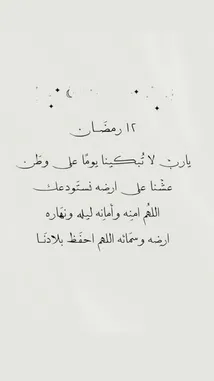 ١٢ رمضَـان
يارب لا تُبكينا يومًا على وطَن
عشْنا على ارضه نستَودعك
اللهُم امنِه وأمانِه ليله ونهَاره
ارضه وسمَائه اللهم احفَظ بلادنَـا